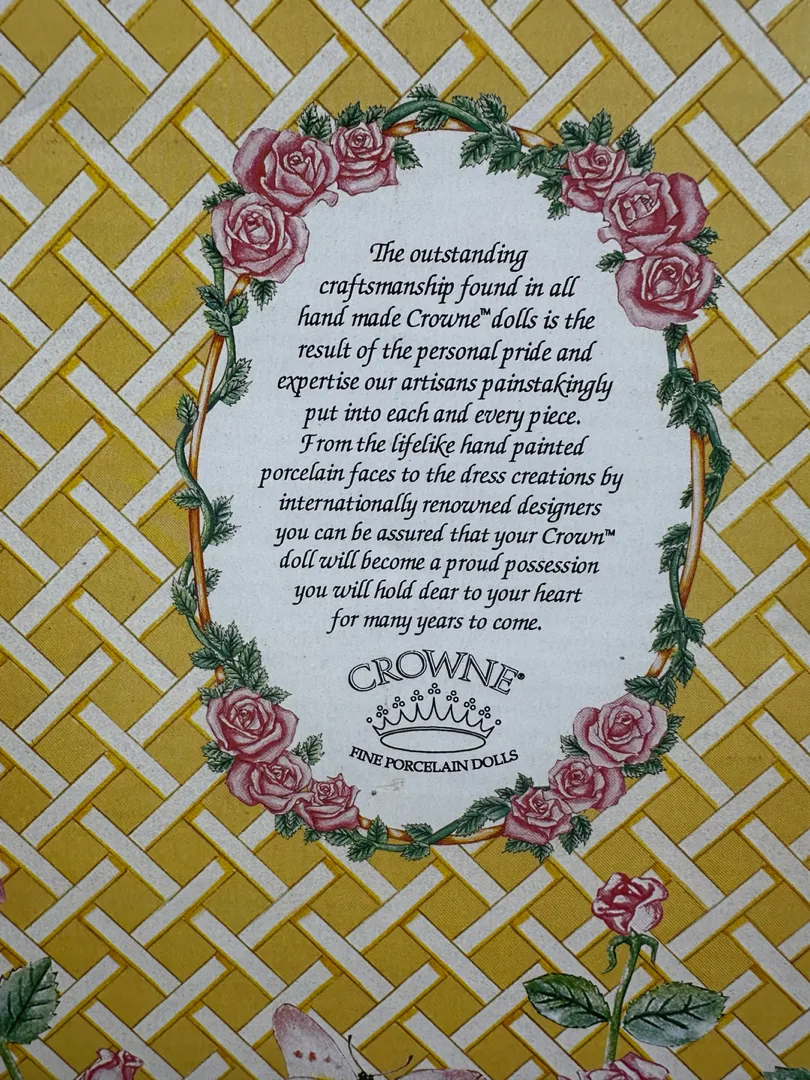 The outstanding
craftsmanship found in all
hand made Crowne™ dolls is the
result of the personal pride and
expertise our artisans painstakingly
put into each and every piece.
From the lifelike hand painted
porcelain faces to the dress creations by
internationally renowned designers
you can be assured that your Crown™
doll will become a proud possession
you will hold dear to your heart
for many years to come.
CROWNE®
FINE PORCELAIN DOLLS